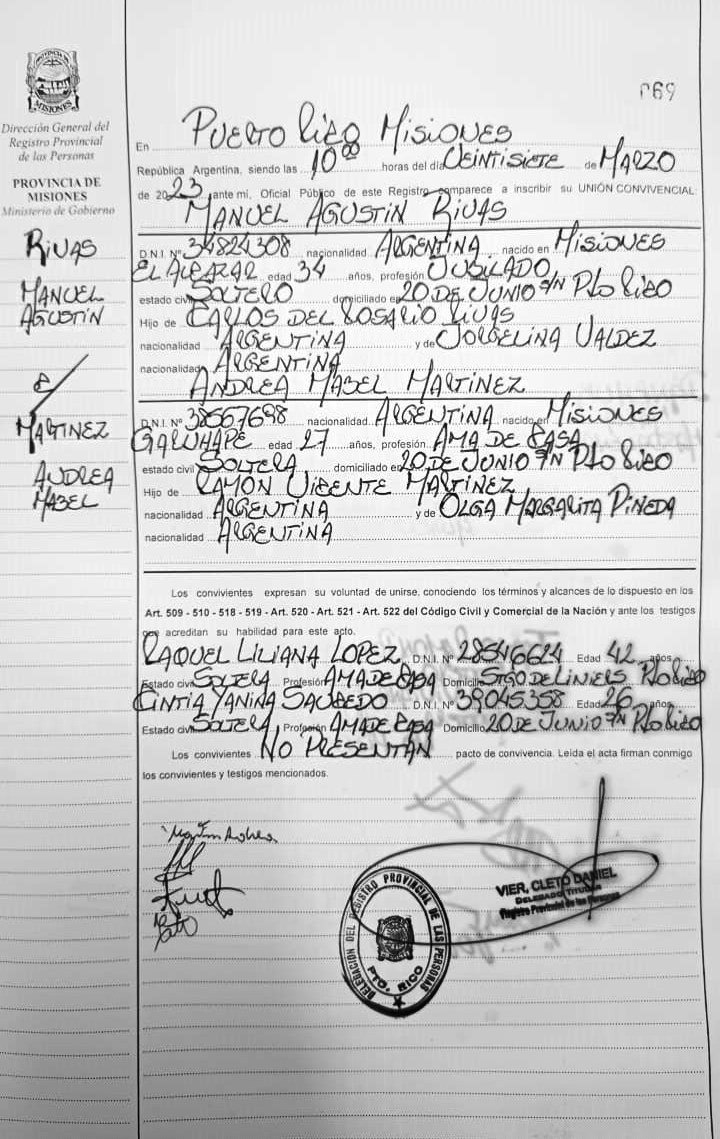 069
PROVINCIA DE
MISIONES
Dirección General del
Registro Provincial
de las Personas
PROVINCIA DE
MISIONES
Ministerio de Gobierno
RIVAS
MANUEL
AGUSTIN
MARTINEZ
ANDREA
MABEL
En PUERTO RICO MISIONES
República Argentina, siendo las 10 00 horas del día VEINTISIETE de MARZO
de 2023 ante mí, Oficial Público de este Registro comparece a inscribir su UNIÓN CONVIVENCIAL:
MANUEL AGUSTIN RIVAS
D.N.I. Nº 34824308 nacionalidad ARGENTINA nacido en MISIONES
EL ALCAZAR edad 34 años, profesión JUBILADO
estado civil SOLTERO domiciliado en 20 DE JUNIO S/N PTO RICO
Hijo de CARLOS DEL ROSARIO RIVAS
nacionalidad ARGENTINA y de JORGELINA VALDEZ
nacionalidad ARGENTINA
ANDREA MABEL MARTINEZ
D.N.I. Nº 38567698 nacionalidad ARGENTINA nacido en MISIONES
GARUHAPE edad 27 años, profesión AMA DE CASA
estado civil SOLTERA domiciliado en 20 DE JUNIO S/N PTO RICO
Hijo de RAMON VICENTE MARTINEZ
nacionalidad ARGENTINA y de OLGA MARGARITA PINEDA
nacionalidad ARGENTINA
Los convivientes expresan su voluntad de unirse, conociendo los términos y alcances de lo dispuesto en los
Art. 509 - 510 - 518 - 519 - Art. 520 - Art. 521 - Art. 522 del Código Civil y Comercial de la Nación y ante los testigos
que acreditan su habilidad para este acto.
RAQUEL LILIANA LOPEZ D.N.I. Nº 28546624 Edad 42 años
Estado civil SOLTERA Profesión AMA DE CASA Domicilio STGO DE LINIERS P RICO
CINTIA YANINA SAUCEDO D.N.I. Nº 39045358 Edad 26 años
Estado civil SOLTERA, Profesión AMA DE CASA Domicilio 20 DE JUNIO S/N PTO RICO
Los convivientes NO PRESENTAN pacto de convivencia. Leída el acta firman conmigo
los convivientes y testigos mencionados.
VIER, CLETO DANIEL
DELEGADO TITULAR
Registro Provincial de las Personas
DELEGACION DEL REGISTRO PROVINCIAL DE LAS PERSONAS
PTO. RICO